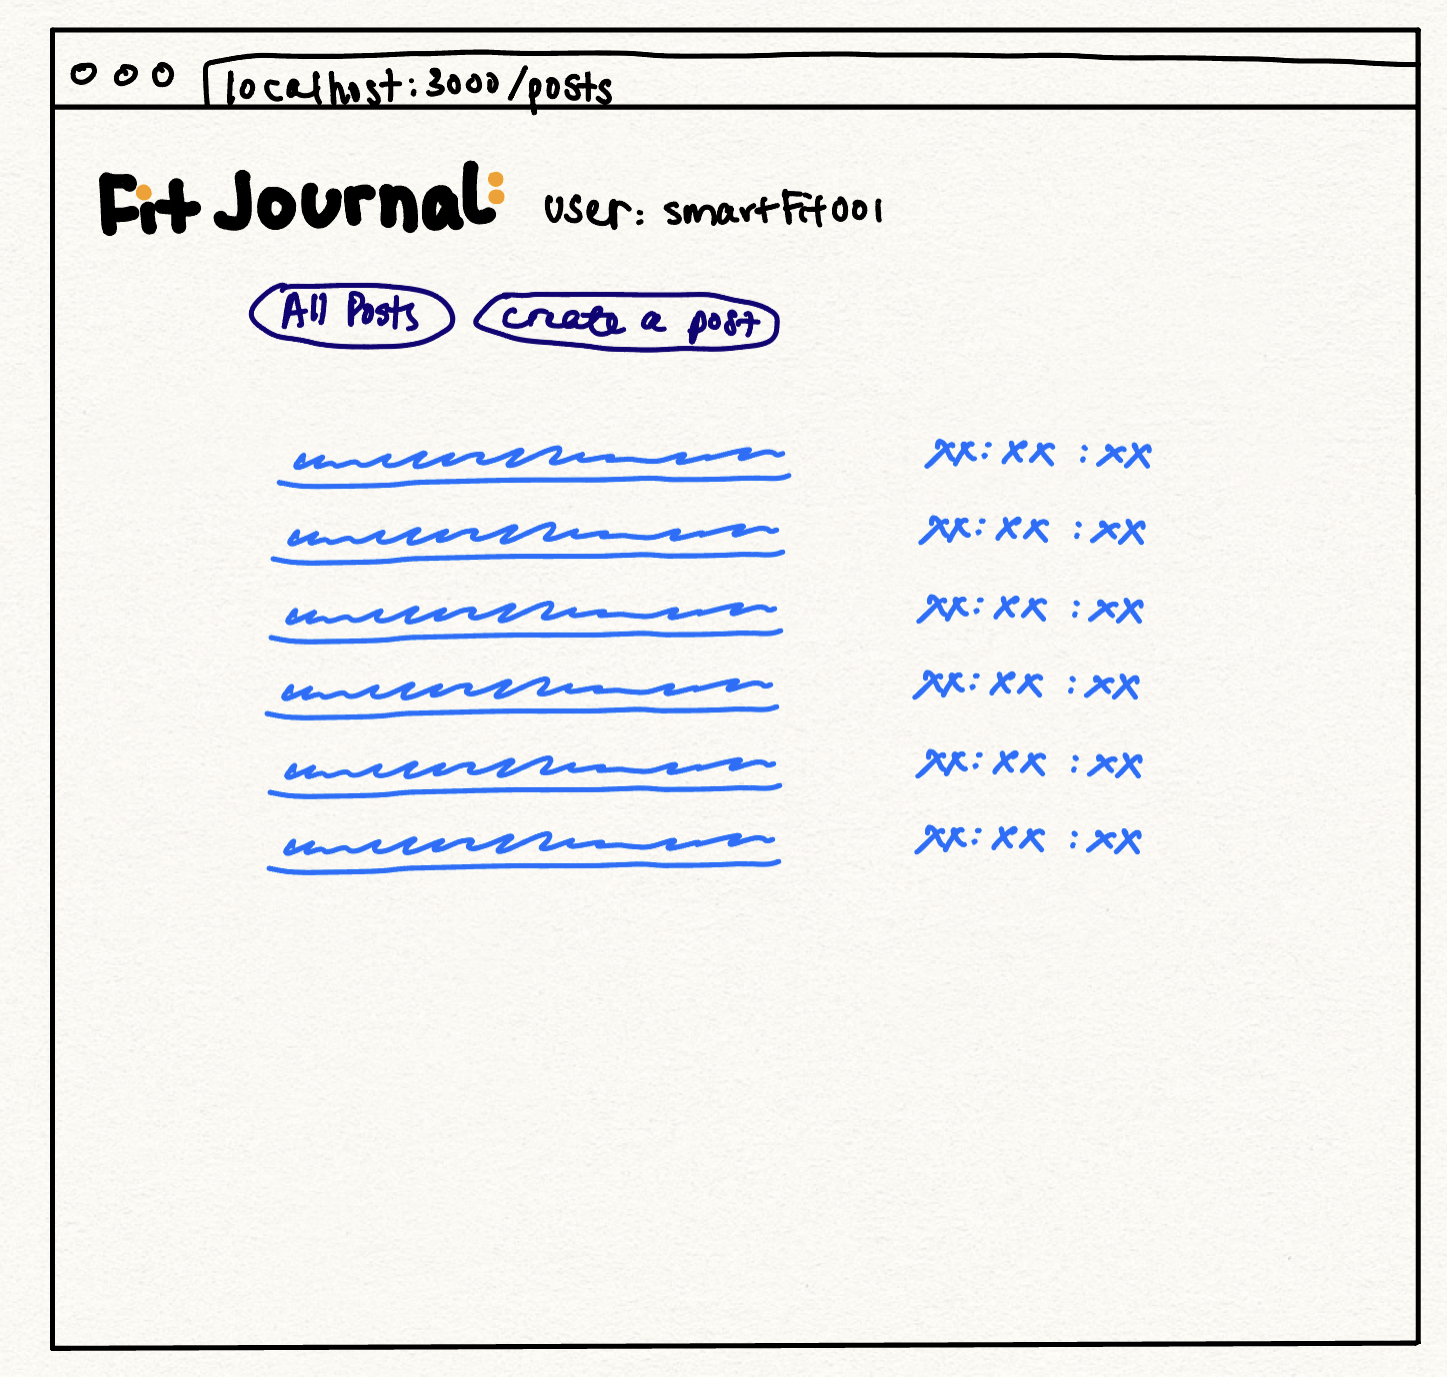 localhost:3000/posts
Fit Journal: user: smartFit001
All Posts create a post
xx:xx :xx
xx:xx :xx
xx:xx :xx
xx:xx :xx
xx:xx :xx
xx:xx :xx